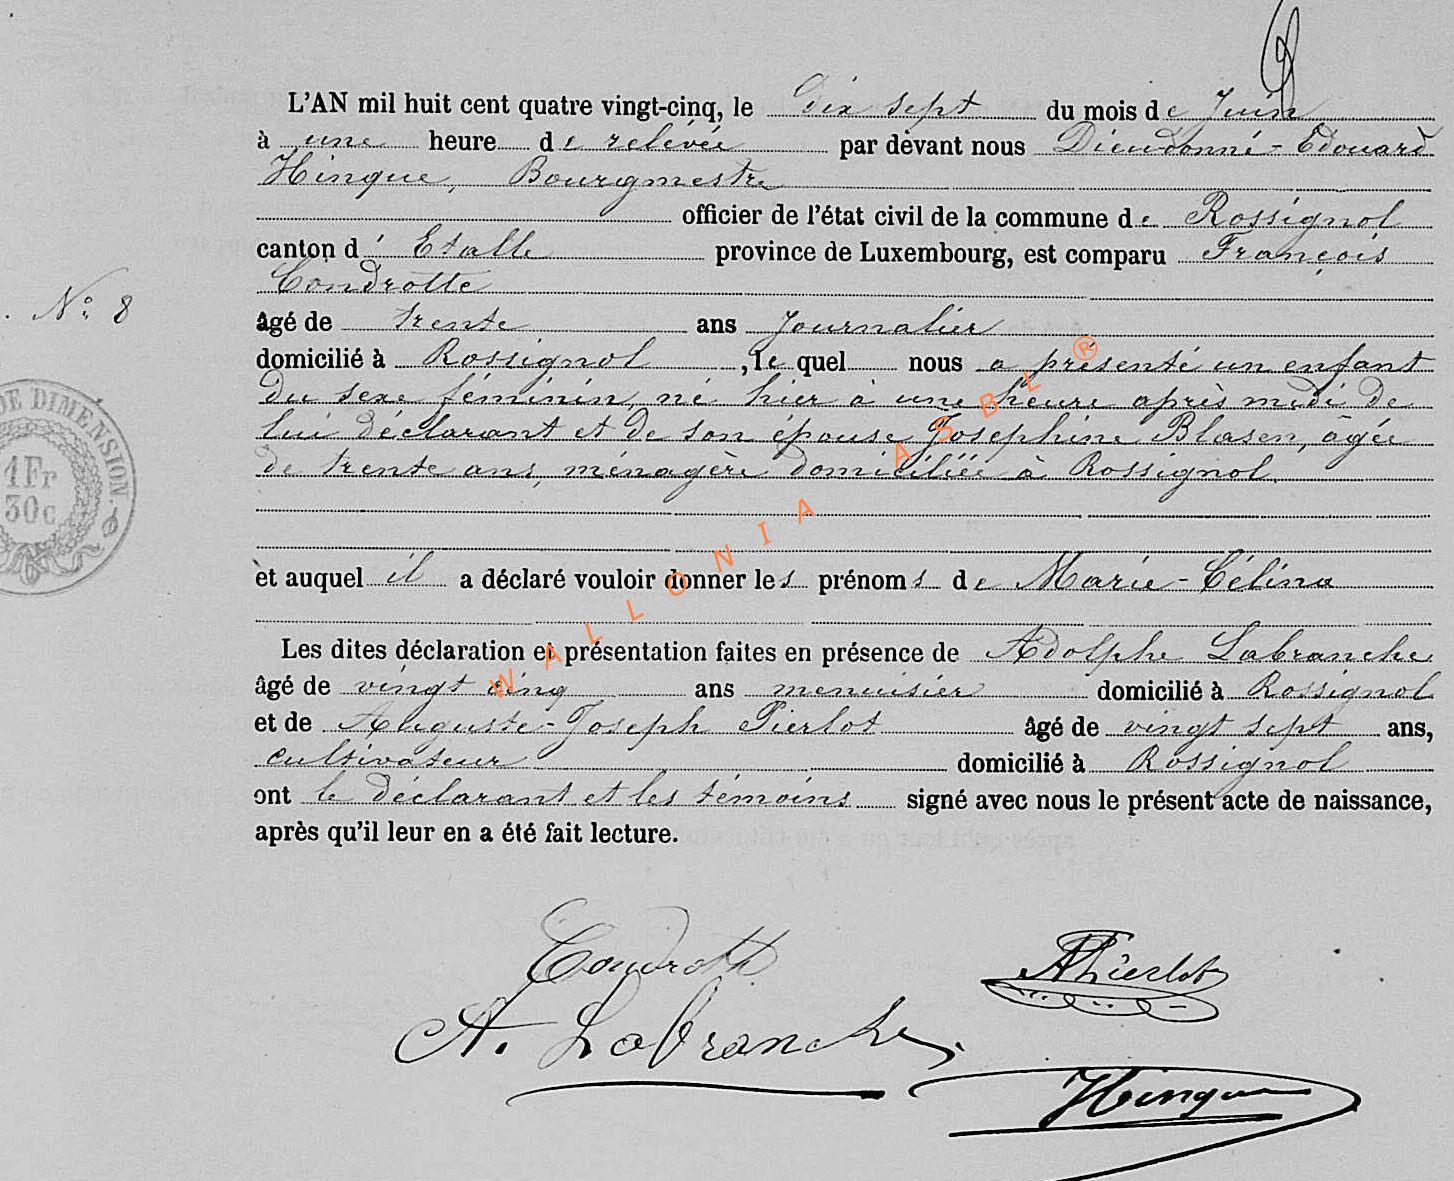 L'AN mil huit cent quatre vingt-cinq, le Dix sept du mois de Juin
à une heure de relevée par devant nous Dieudonné-Edouard
Hinque, Bourgmestre
officier de l'état civil de la commune de Rossignol
canton d' Etalle province de Luxembourg, est comparu François
Condrotte
N° 8
âgé de trente ans Journalier
domicilié à Rossignol, le quel nous a présenté un enfant
du sexe féminin, né hier à une heure après midi de
lui déclarant et de son épouse Joséphine Blasen, âgée
de trente ans, ménagère domiciliée à Rossignol.
DE DIMENSION
1Fr
30c
et auquel il a déclaré vouloir donner les prénoms de Marie-Célina
Les dites déclaration et présentation faites en présence de Adolphe Labranche
âgé de vingt cinq ans menuisier domicilié à Rossignol
et de Auguste-Joseph Pierlot âgé de vingt sept ans,
cultivateur domicilié à Rossignol
ont le déclarant et les témoins signé avec nous le présent acte de naissance,
après qu'il leur en a été fait lecture.
Condrotte
APierlot
A. Labranche
Hinque
WALLONIA ASBL ®